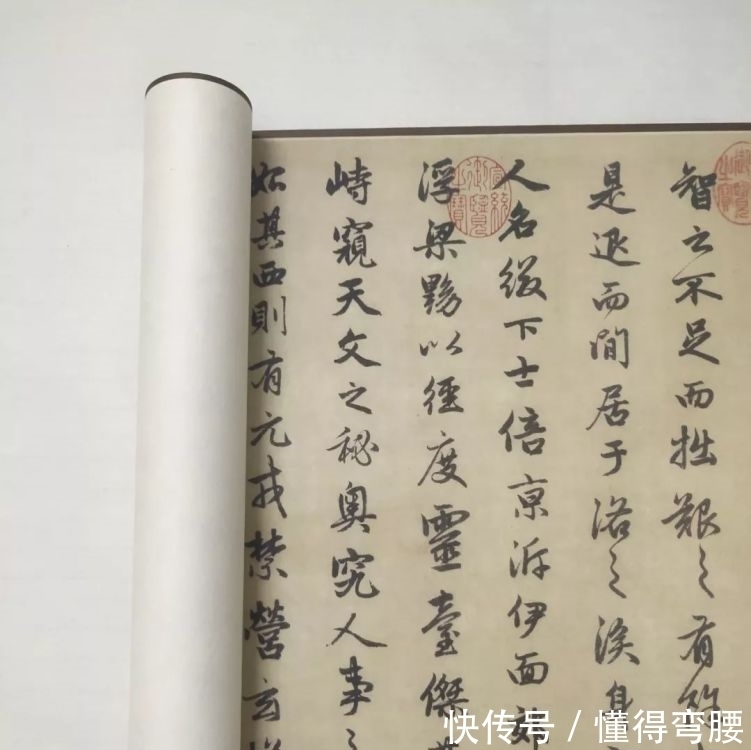 智之不足而拙艱之有餘
是退而閒居于洛之涘身
人名綴下士倍京泝伊面郊
浮梁黝以徑度靈臺傑其
峙窺天文之秘奥究人事之
始其西則有元戎禁營玄
宣統御覽之寶
快传号 / 懂得弯腰